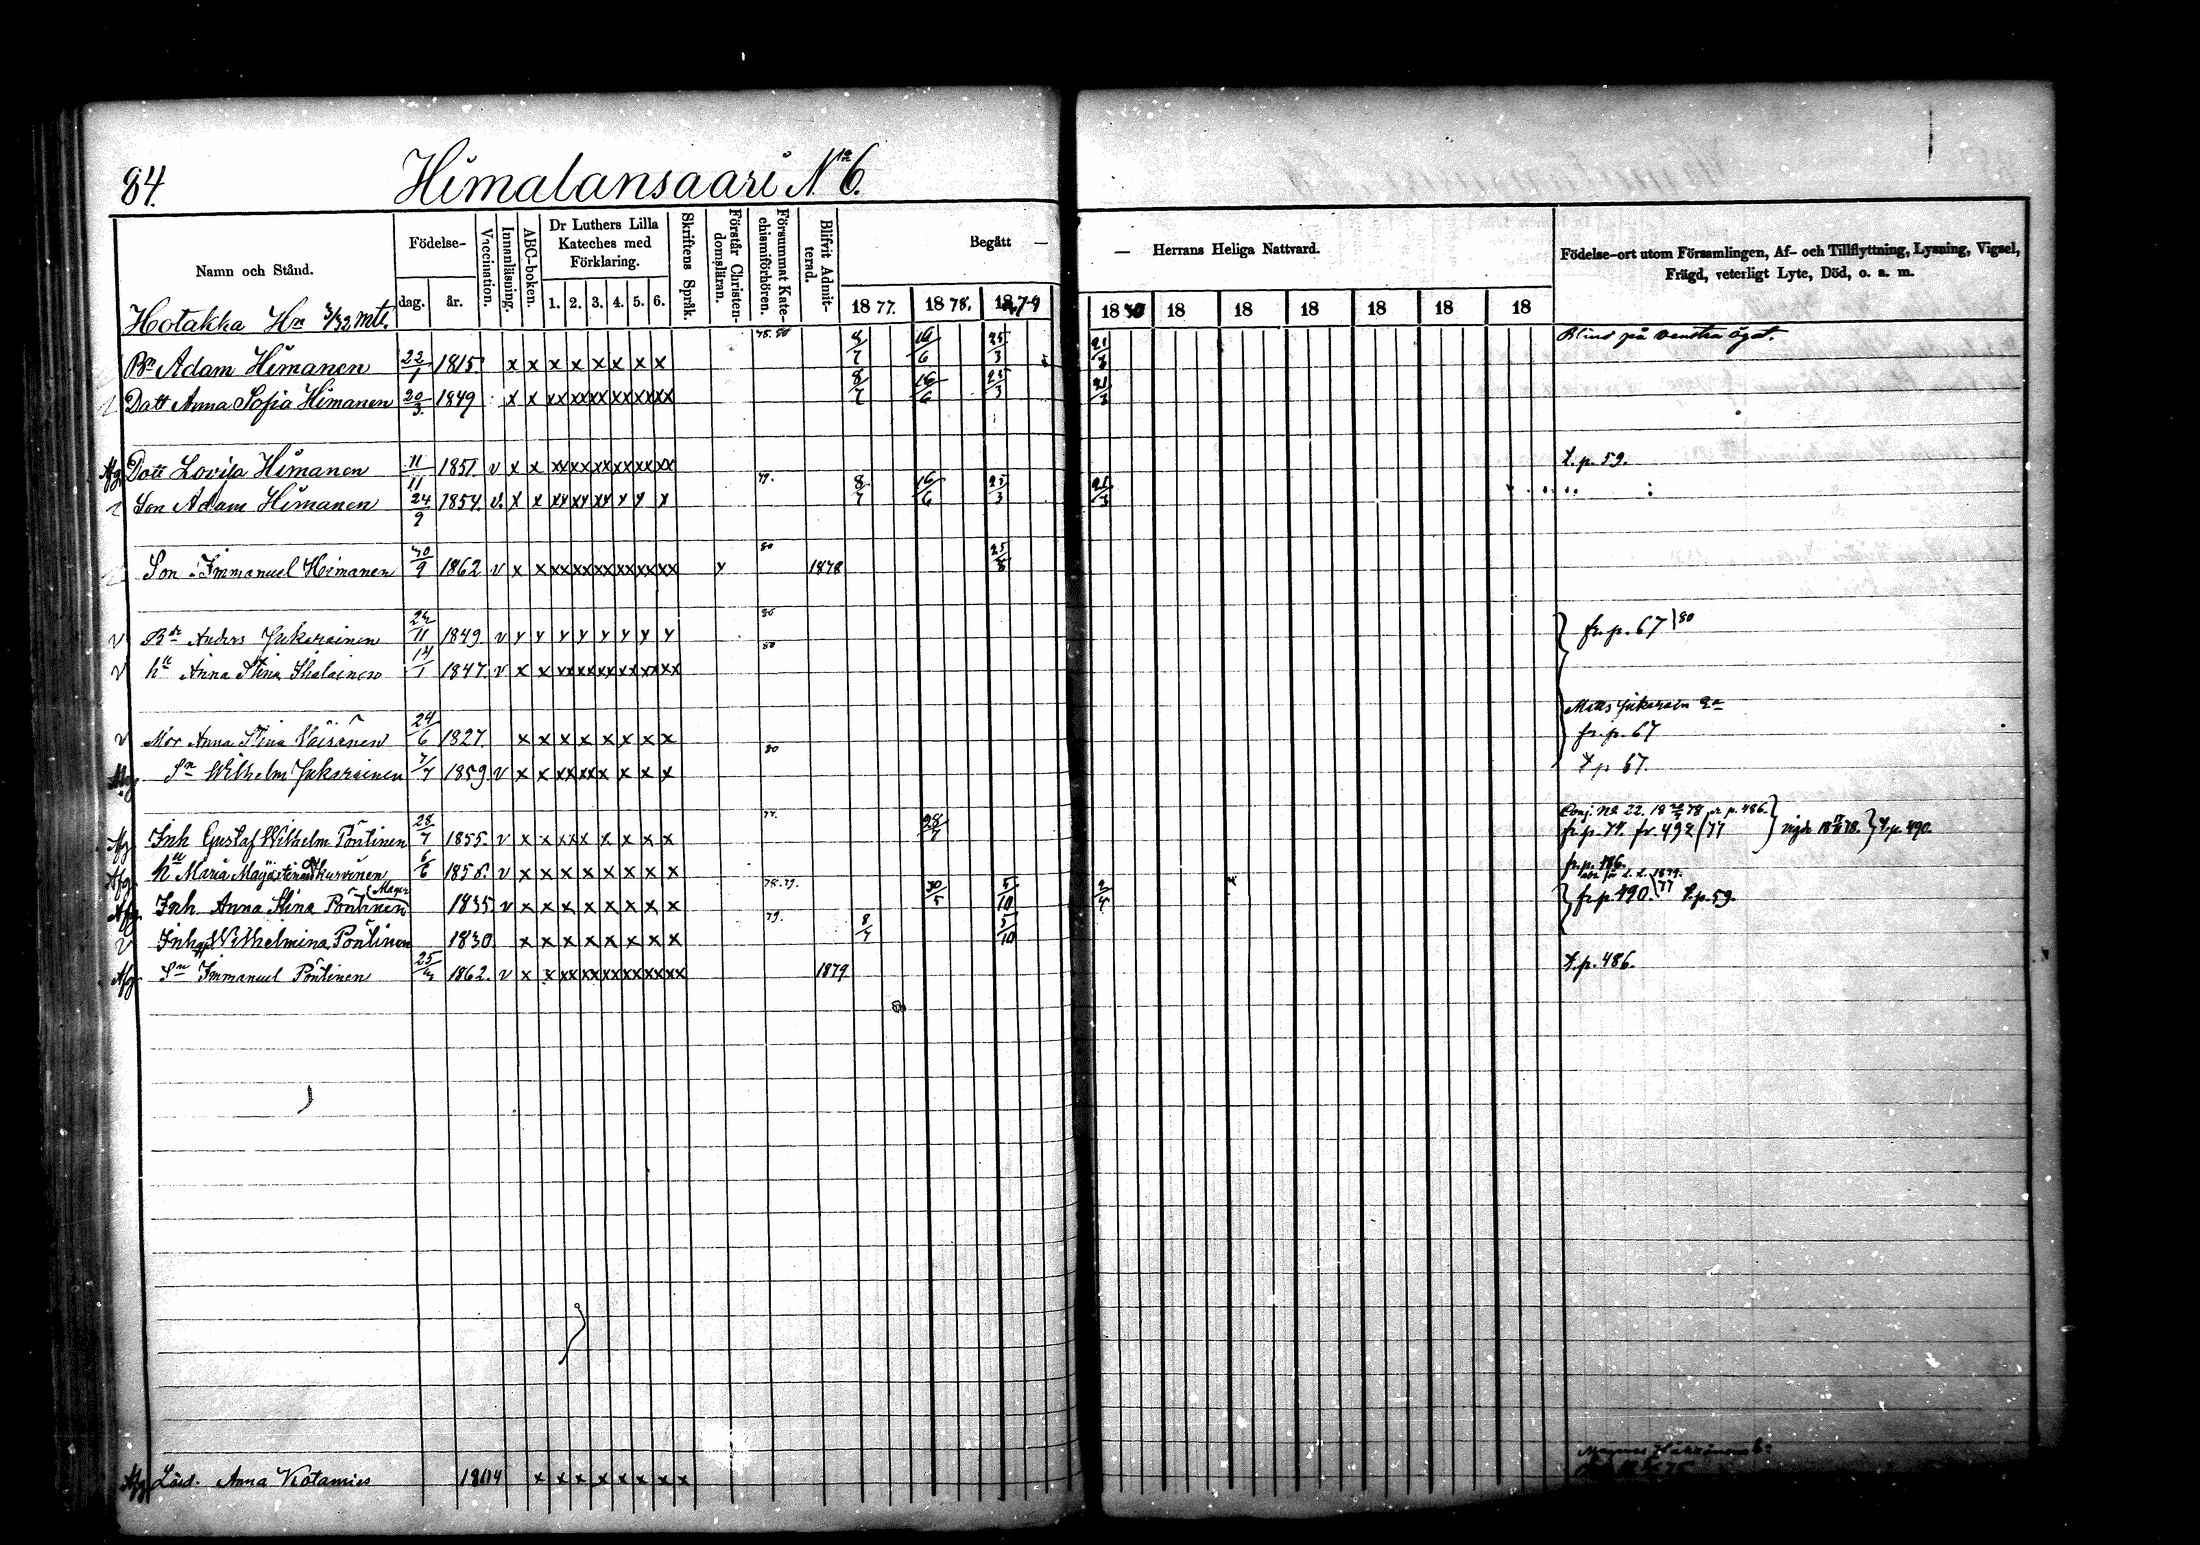 84.
Himalansaari No 6.
Namn och Stånd.
Födelse-
dag. år.
Vaccination.
Innanläsning.
ABC-boken.
Dr Luthers Lilla Kateches med Förklaring.
1. 2. 3. 4. 5. 6.
Skriftens Språk.
Förstår Christendomsläran.
Försummat Katechismiförhören.
Blifvit Admitterad.
Begått —
— Herrans Heliga Nattvard.
1877. 1878. 1879 1880 18 18 18 18 18 18
Födelse-ort utom Församlingen, Af- och Tillflyttning, Lysning, Vigsel,
Frägd, veterligt Lyte, Död, o. a. m.
Hotakka Hn 3/32 mtl.
Bn Adam Himanen 22/1 1815 x x x x x x x x 8/7 16/6 25/3 21/3 Blind på venstra ögat.
Dott Anna Sofia Himanen 20/3 1849 x x xx xx xx xx xx xx 8/7 16/6 25/3 21/3
Afg Dott Lovisa Himanen 11/11 1851 v x x xx xx xx xx xx xx t.p. 59.
Son Adam Himanen 24/9 1854. v. x x xx xx xx x x x 79. 8/7 16/6 25/3 21/3
Son Immanuel Himanen 30/9 1862 v x x xx xx xx xx xx xx x 80 1878
v Anders Jukarainen 1849 v x x x x x x x x fr. p. 67/80
v Anna Stina 14/1 1847 v x x 80
v Mor Anna Stina Väisänen 24/6 1827 x x x x x x x x fr. p. 67
Sn Wilhelm Jukarainen 1859 v x x xx xx x x x x 80 t p 67.
Afg Inh Gustaf Wilhelm Pöntinen 28/7 1855. v x x xx x x x x x 77. 28/7 fr. p. 74. fr. 492/77 t.p. 490.
Afg Maria 6/6 1858. v x x x x x x x x
Afg Inh Anna Stina Pöntinen 1835 v x x x x x x x x 30/5 5/10 2/4 fr p. 490./77 t.p. 59.
v Inh Wilhelmina Pöntinen 1830 x x x x x x x x 79. 8/7 5/10
Afg Sn Immanuel Pöntinen 1862. v x x xx xx xx xx xx xx 1879 t.p. 486.
Afg Anna Kotamies 1804 x x x x x x x